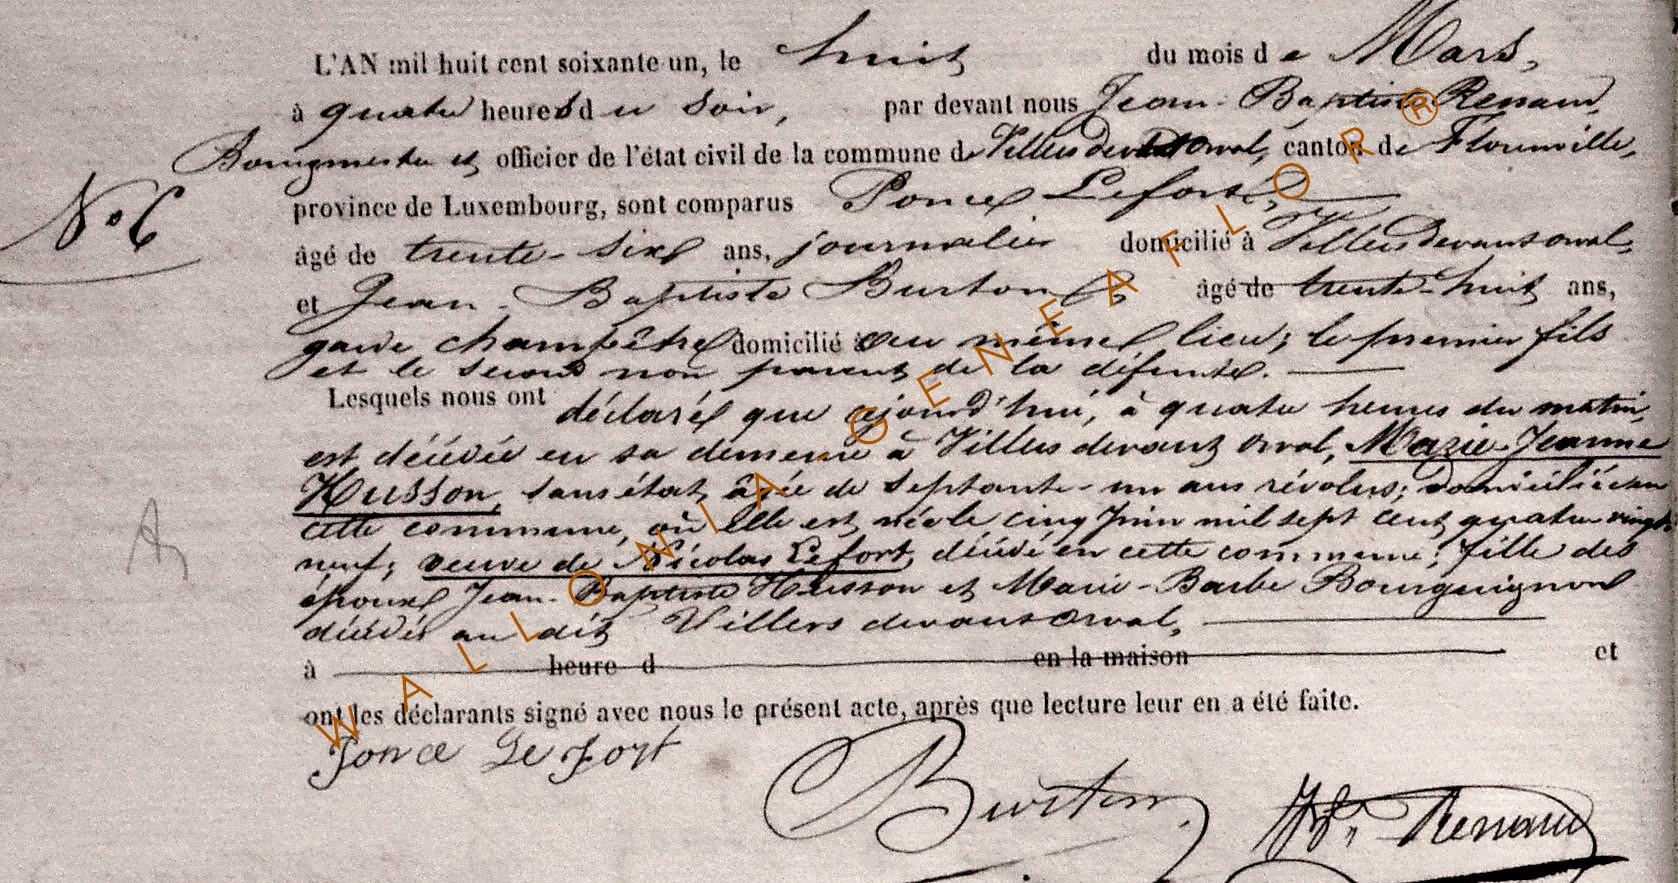 L'AN mil huit cent soixante un, le huit du mois de Mars,
à quatre heures du soir, par devant nous Jean-Baptiste Renaud,
Bourgmestre et officier de l'état civil de la commune de Villers devant Orval, canton de Florenville,
N° 6
province de Luxembourg, sont comparus Ponce Lefort,
âgé de trente-six ans, journalier domicilié à Villers devant orval,
et Jean-Baptiste Burton âgé de trente-huit ans,
garde champêtre domicilié au même lieu; le premier fils
et le second non parent de la défunte.
Lesquels nous ont déclaré que ajourd'hui, à quatre heures du matin,
est décédée en sa demeure à Villers devant Orval, Marie-Jeanne
Husson, sans état, âgée de septante-un ans révolus; domiciliée en
cette commune, où Elle est née le cinq Juin mil sept cent quatre vingt
neuf; veuve de Nicolas Lefort, décédé en cette commune; fille des
époux Jean-Baptiste Husson et Marie-Barbe Bourguignon
décédés au dit Villers devant Orval,
à heure d en la maison et
ont les déclarants signé avec nous le présent acte, après que lecture leur en a été faite.
Ponce Lefort
Burton
Renaud
WALLONIA-GENEAFLOR®